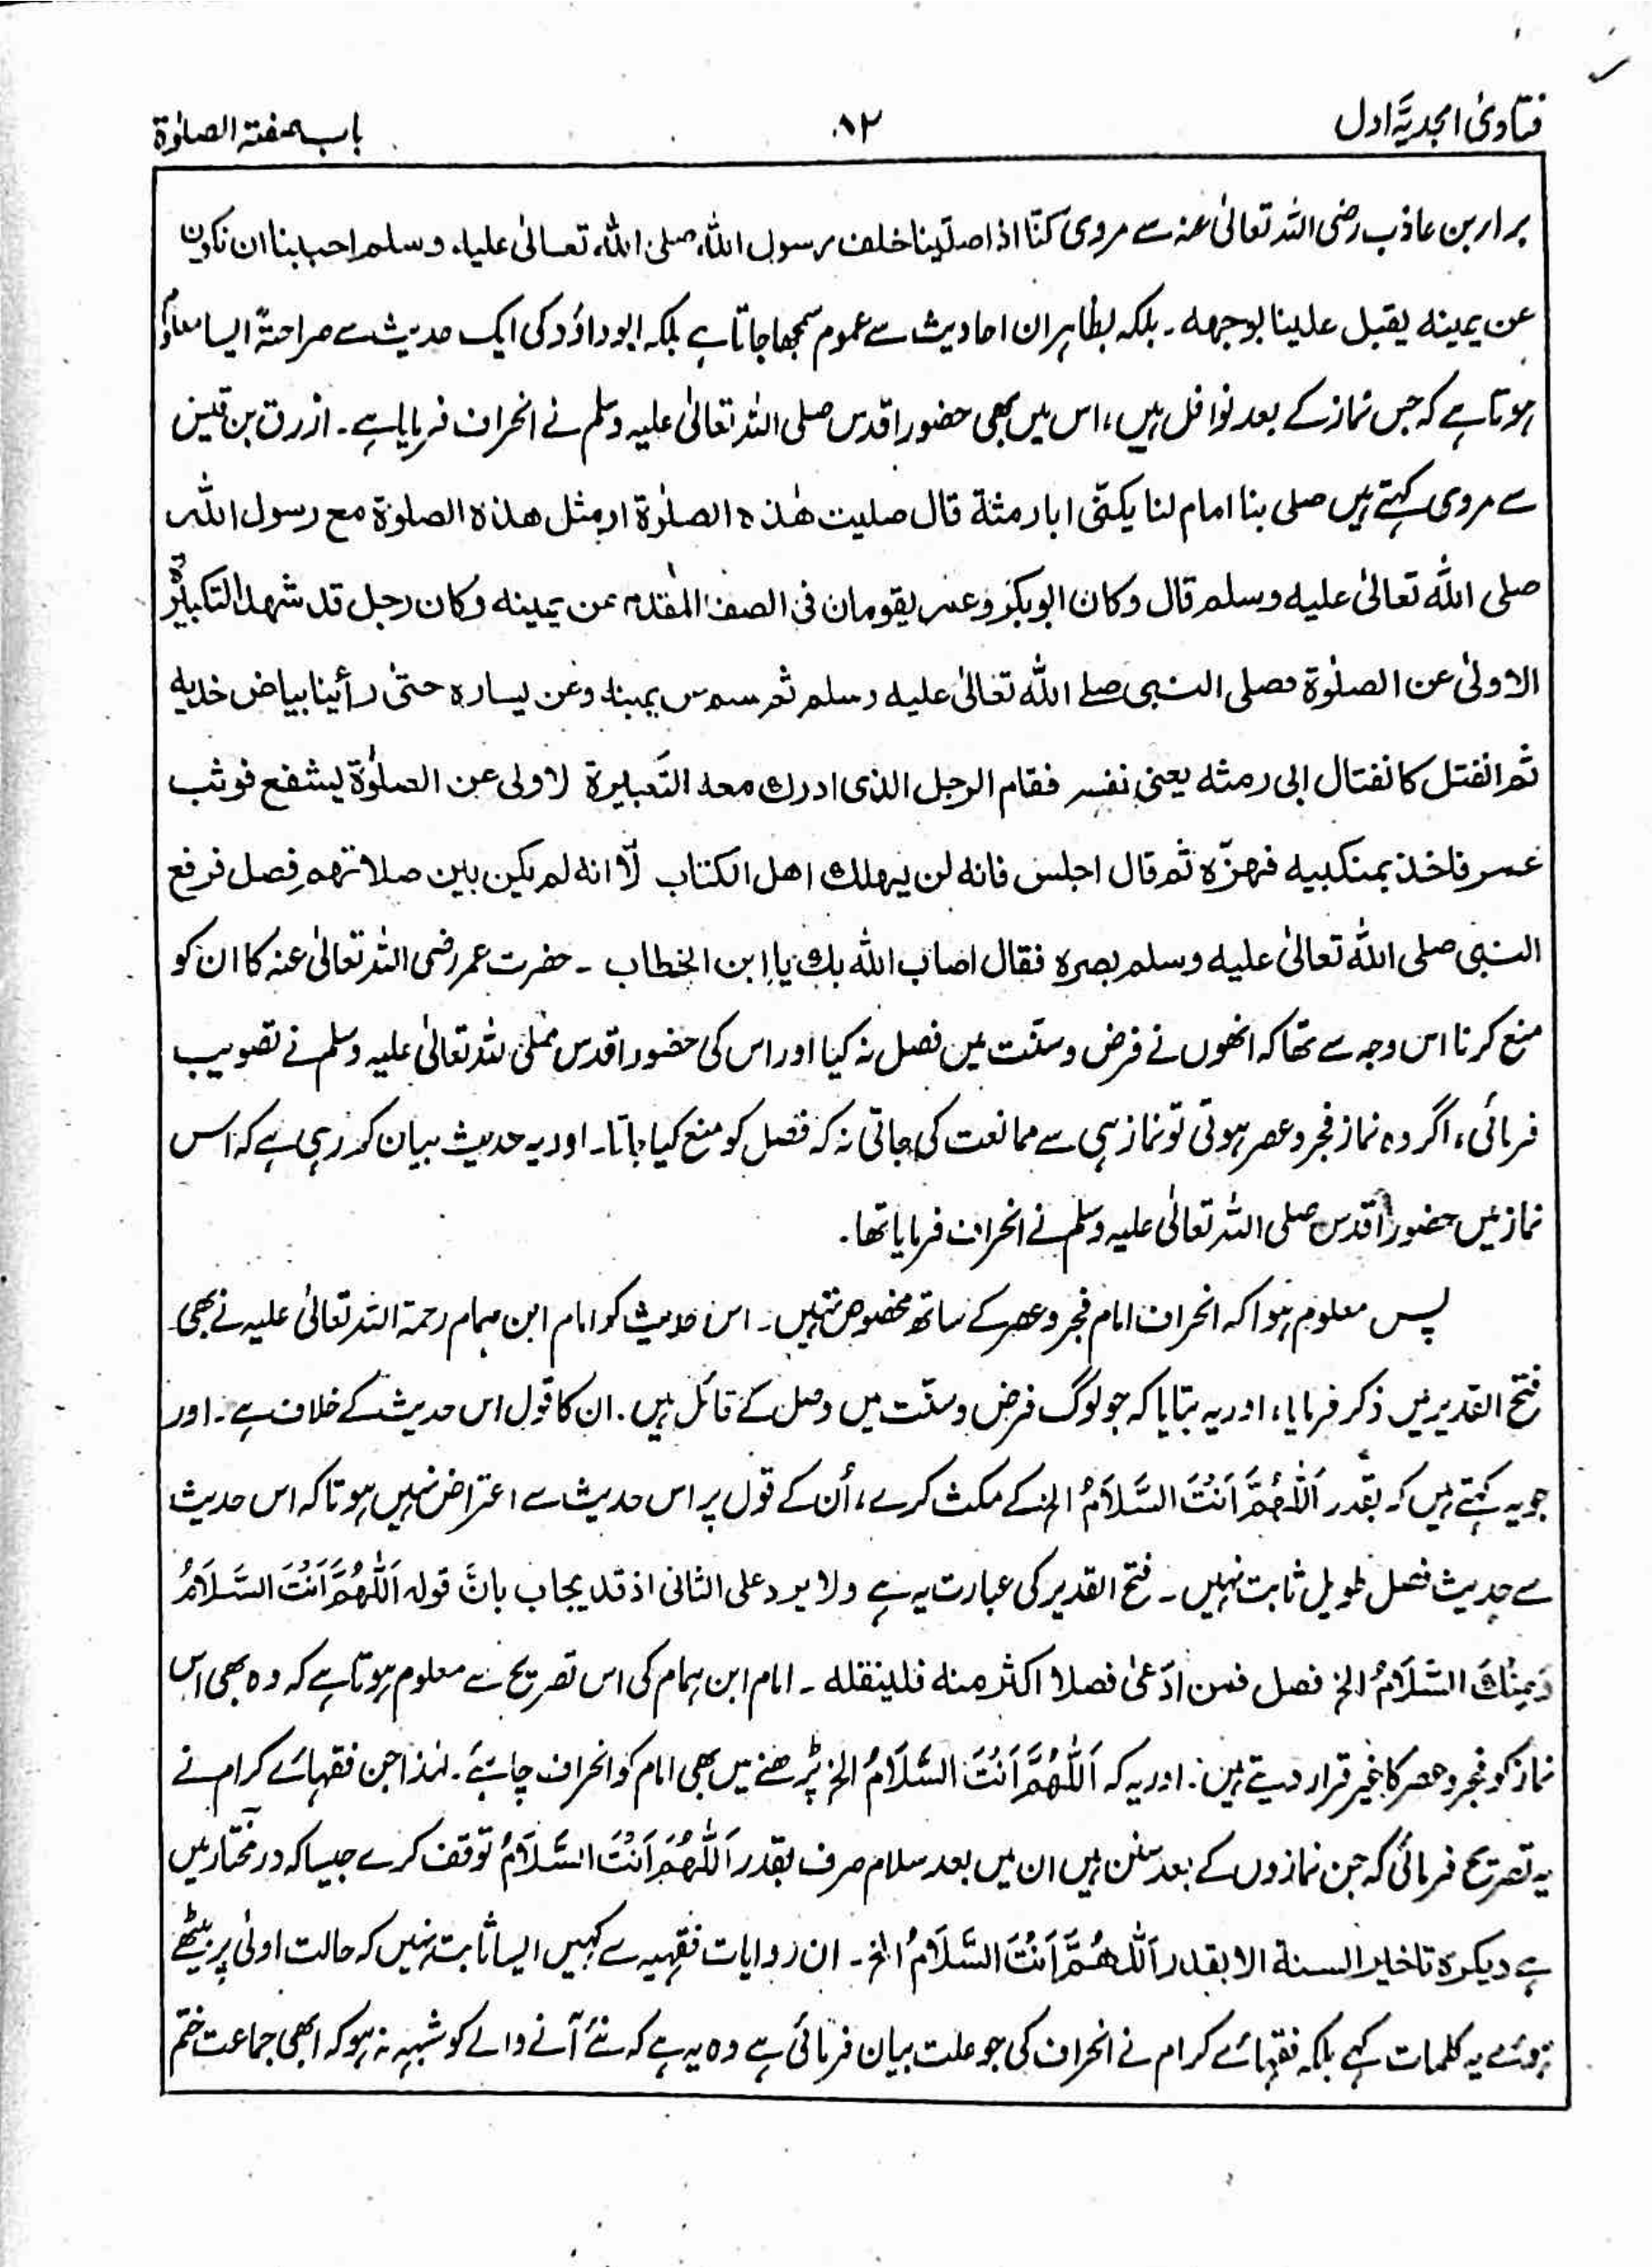 فتاویٰ امجدیہ اول
۸۲
باب صفۃ الصلوٰۃ
برار بن عاذب رضی اللہ تعالیٰ عنہ سے مروی کنّا اذا صلّینا خلف رسول اللہ صلی اللہ تعالیٰ علیہ وسلم احببنا ان نکون
عن یمینہ یقبل علینا بوجھہ۔ بلکہ بظاہر ان احادیث سے عموم سمجھا جاتا ہے بلکہ ابوداؤد کی ایک حدیث سے صراحۃً ایسا معلوم
ہوتا ہے کہ جس نماز کے بعد نوافل ہیں، اس میں بھی حضور اقدس صلی اللہ تعالیٰ علیہ وسلم نے انحراف فرمایا ہے۔ ازرق بن قیس
سے مروی کہتے ہیں صلی بنا امام لنا یکنّی ابا رمثۃ قال صلیت ھٰذہ الصلوٰۃ او مثل ھذہ الصلوٰۃ مع رسول اللہ
صلی اللہ تعالیٰ علیہ وسلم قال وکان ابوبکر وعمر یقومان فی الصف المقدم عن یمینہ وکان رجل قد شھد التکبیرۃ
الاولیٰ عن الصلوٰۃ فصلی النبی صلے اللہ تعالیٰ علیہ وسلم ثم سلم عن یمینہ وعن یسارہ حتیٰ رأینا بیاض خدیہ
ثم انفتل کانفتال ابی رمثہ یعنی نفسہ فقام الرجل الذی ادرك معہ التکبیرۃ لاولی عن الصلوٰۃ لیشفع فوثب
عمر فاخذ بمنکبیہ فھزّہ ثم قال اجلس فانہ لن یھلك اھل الکتاب لّا انہ لم یکن بین صلاتھم فصل فرفع
النبی صلی اللہ تعالیٰ علیہ وسلم بصرہ فقال اصاب اللہ بك یا ابن الخطاب ۔ حضرت عمر رضی اللہ تعالیٰ عنہ کا ان کو
منع کرنا اس وجہ سے تھا کہ انھوں نے فرض وسنّت میں فصل نہ کیا اور اس کی حضور اقدس صلی اللہ تعالیٰ علیہ وسلم نے تصویب
فرمائی، اگر وہ نماز فجر وعصر ہوتی تو نماز ہی سے ممانعت کی جاتی نہ کہ فصل کو منع کیا جاتا۔ اور یہ حدیث بیان کر رہی ہے کہ اس
نماز میں حضور اقدس صلی اللہ تعالیٰ علیہ وسلم نے انحراف فرمایا تھا۔
پس معلوم ہوا کہ انحراف امام فجر وعصر کے ساتھ مخصوص نہیں۔ اس حدیث کو امام ابن ہمام رحمۃ اللہ تعالیٰ علیہ نے بھی
فتح القدیر میں ذکر فرمایا، اور یہ بتایا کہ جو لوگ فرض وسنّت میں وصل کے قائل ہیں۔ ان کا قول اس حدیث کے خلاف ہے۔ اور
جو یہ کہتے ہیں کہ بقدر اَللّٰھُمَّ اَنْتَ السَّلَامُ الخ کے مکث کرے، اُن کے قول پر اس حدیث سے اعتراض نہیں ہوتا کہ اس حدیث
سے حدیث فصل طویل ثابت نہیں ۔ فتح القدیر کی عبارت یہ ہے ولا یرد علی الثانی اذ قد یجاب بانّ قولہ اَللّٰھُمَّ اَنْتَ السَّلَامُ
وَمِنْكَ السَّلَامُ الخ فصل فمن ادّعیٰ فصلا اکثر منہ فلینقلہ ۔ امام ابن ہمام کی اس تصریح سے معلوم ہوتا ہے کہ وہ بھی اس
نماز کو فجر وعصر کا غیر قرار دیتے ہیں۔ اور یہ کہ اَللّٰھُمَّ اَنْتَ السَّلَامُ الخ پڑھنے میں بھی امام کو انحراف چاہئے۔ لہٰذا جن فقہائے کرام نے
یہ تصریح فرمائی کہ جن نمازوں کے بعد سنن ہیں ان میں بعد سلام صرف بقدر اَللّٰھُمَّ اَنْتَ السَّلَامُ توقف کرے جیسا کہ درمختار میں
ہے ویکرہ تاخیر السنۃ الا بقدر اَللّٰھُمَّ اَنْتَ السَّلَامُ الخ۔ ان روایات فقہیہ سے کہیں ایسا ثابت نہیں کہ حالت اولیٰ پر بیٹھے
ہوئے یہ کلمات کہے بلکہ فقہائے کرام نے انحراف کی جو علت بیان فرمائی ہے وہ یہ ہے کہ نئے آنے والے کو شبہہ نہ ہو کہ ابھی جماعت ختم